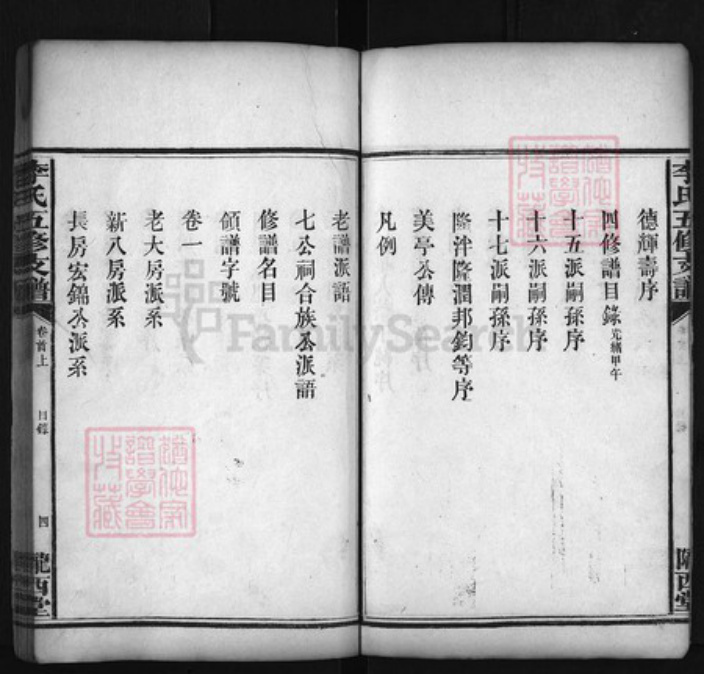 李氏五修支譜
隴西堂
德輝壽序
四修譜目錄光緒甲午
十五派嗣孫序
十六派嗣孫序
十七派嗣孫序
隆泮隆潤邦鈞等序
美亭公傳
凡例
老譜派語
七公祠合族公派語
修譜名目
領譜字號
卷一
老大房派系
新八房派系
長房宏錦公派系
李氏五修支譜
卷首上
目錄
四
隴西堂
FamilySearch